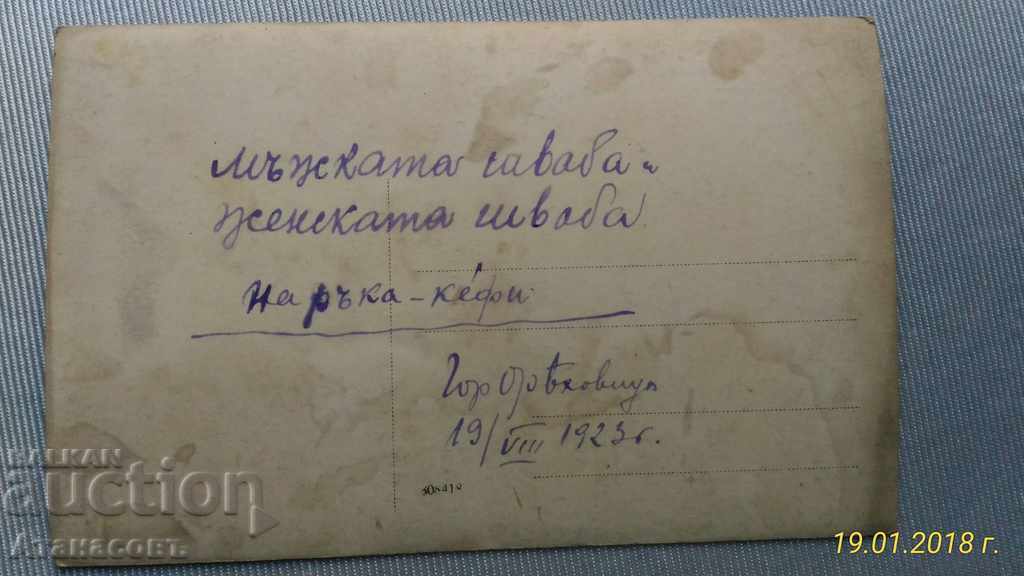 Мъжката шваба и
женската шваба
на ръка - кефи
Гор Орѣховица
19/VIII 1923 г.
308410
BALKAN
auction
Атанасовъ
19.01.2018 г.